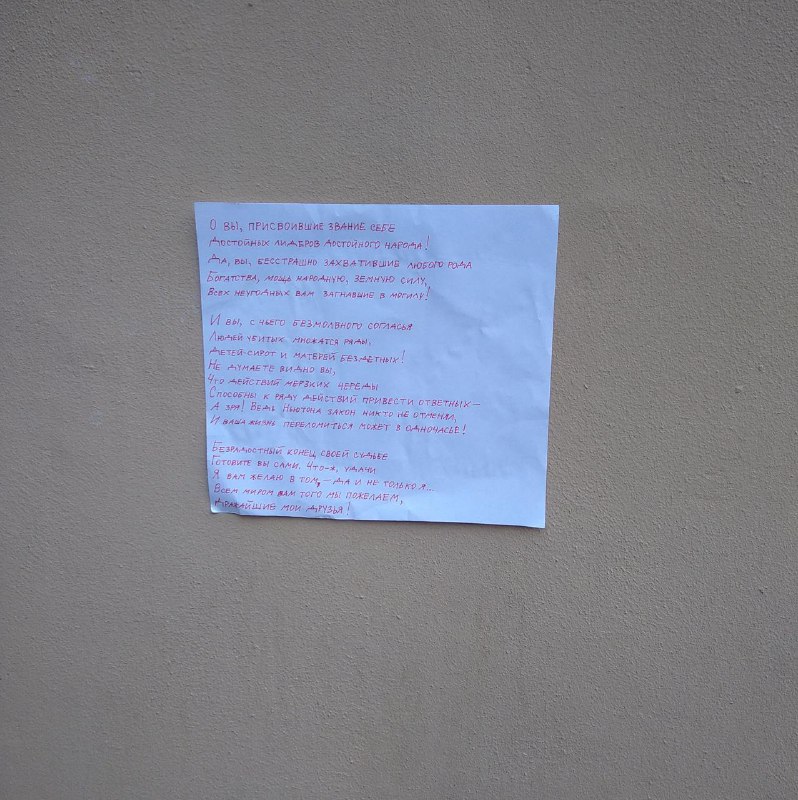 О вы, присвоившие звание себе
Достойных лидеров достойного народа!
Да, вы, бесстрашно захватившие любого рода
Богатства, мощь народную, земную силу,
Всех неугодных вам загнавшие в могилу!
И вы, с чьего безмолвного согласья
Людей убитых множатся ряды,
Детей-сирот и матерей бездетных!
Не думаете видно вы,
Что действий мерзких череды
Способны к ряду действий привести ответных –
А зря! Ведь Ньютона закон никто не отменял,
И ваша жизнь переломиться может в одночасье!
Безрадостный конец своей судьбе
Готовите вы сами. Что-ж, удачи
Я вам желаю в том, – да и не только я...
Всем миром вам того мы пожелаем,
Дражайшие мои друзья!